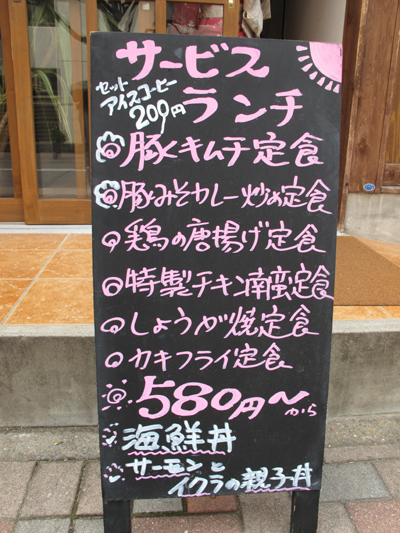 サービス
セット
アイスコーヒー
200円
ランチ
豚キムチ定食
豚みそカレー炒め定食
鶏の唐揚げ定食
特製チキン南蛮定食
しょうが焼定食
カキフライ定食
580円〜から
海鮮丼
サーモンと
イクラの親子丼